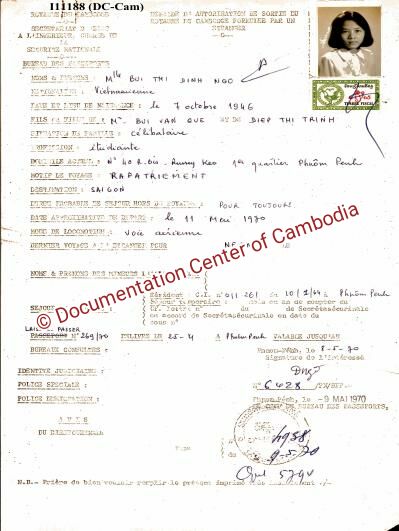 111188 (DC-Cam)
ROYAUME DU CAMBODGE
SECRETARIAT D'ETAT
A L'INTERIEUR, CHARGE DE
LA
SECURITE NATIONALE
BUREAU DES PASSEPORTS
DEMANDE D'AUTORISATION DE SORTIE DU
ROYAUME DU CAMBODGE FORMULEE PAR UN
ETRANGER
TIMBRE FISCAL
NOMS & PRENOMS : Mlle BUI THI DINH NGO
NATIONALITE : Vietnamienne
DATE ET LIEU DE NAISSANCE : le 7 octobre 1946
FILS DE (M. BUI VAN QUE ET DE DIEP THI TRINH
SITUATION DE FAMILLE : célibataire
PROFESSION : étudiante
DOMICILE ACTUEL : N° 40 R. Bis. Russey Keo 1er quartier Phnôm Penh
MOTIF DE VOYAGE : RAPATRIEMENT
DESTINATION : SAIGON
DUREE PROBABLE DE SEJOUR HORS DU ROYAUME : POUR TOUJOURS
DATE APPROXIMATIVE DE DEPART : le 11 Mai 1970
MODE DE LOCOMOTION : Voie aérienne
DERNIER VOYAGE A L'ETRANGER POUR
NOMS & PRENOMS DES MINEURS
© Documentation Center of Cambodia
Résident : C.I. N° 011261 du 10/1/64 à Phnôm Penh
SEJOUR
Séjour temporaire : mois à compter du
Cf. lettre N° du de Sécurité
ou accord de Sécurité en date du
sous n°
LAIS. PASSER
PASSEPORT N° 269/70 DELIVRE LE 25-4 A Phnôm Penh VALABLE JUSQU'AU
BUREAUX CONSULTES :
Phnom-Penh, le 8-5-70
Signature de l'intéressé
IDENTITE JUDICIAIRE :
POLICE SPECIALE :
POLICE
N° 6428
Phnom-Penh, le -9 MAI 1970
BUREAU DES PASSEPORTS,
AVIS
DU DIRECTEUR
4938
9-5-70
N.B.- Prière de bien vouloir remplir le présent imprimé